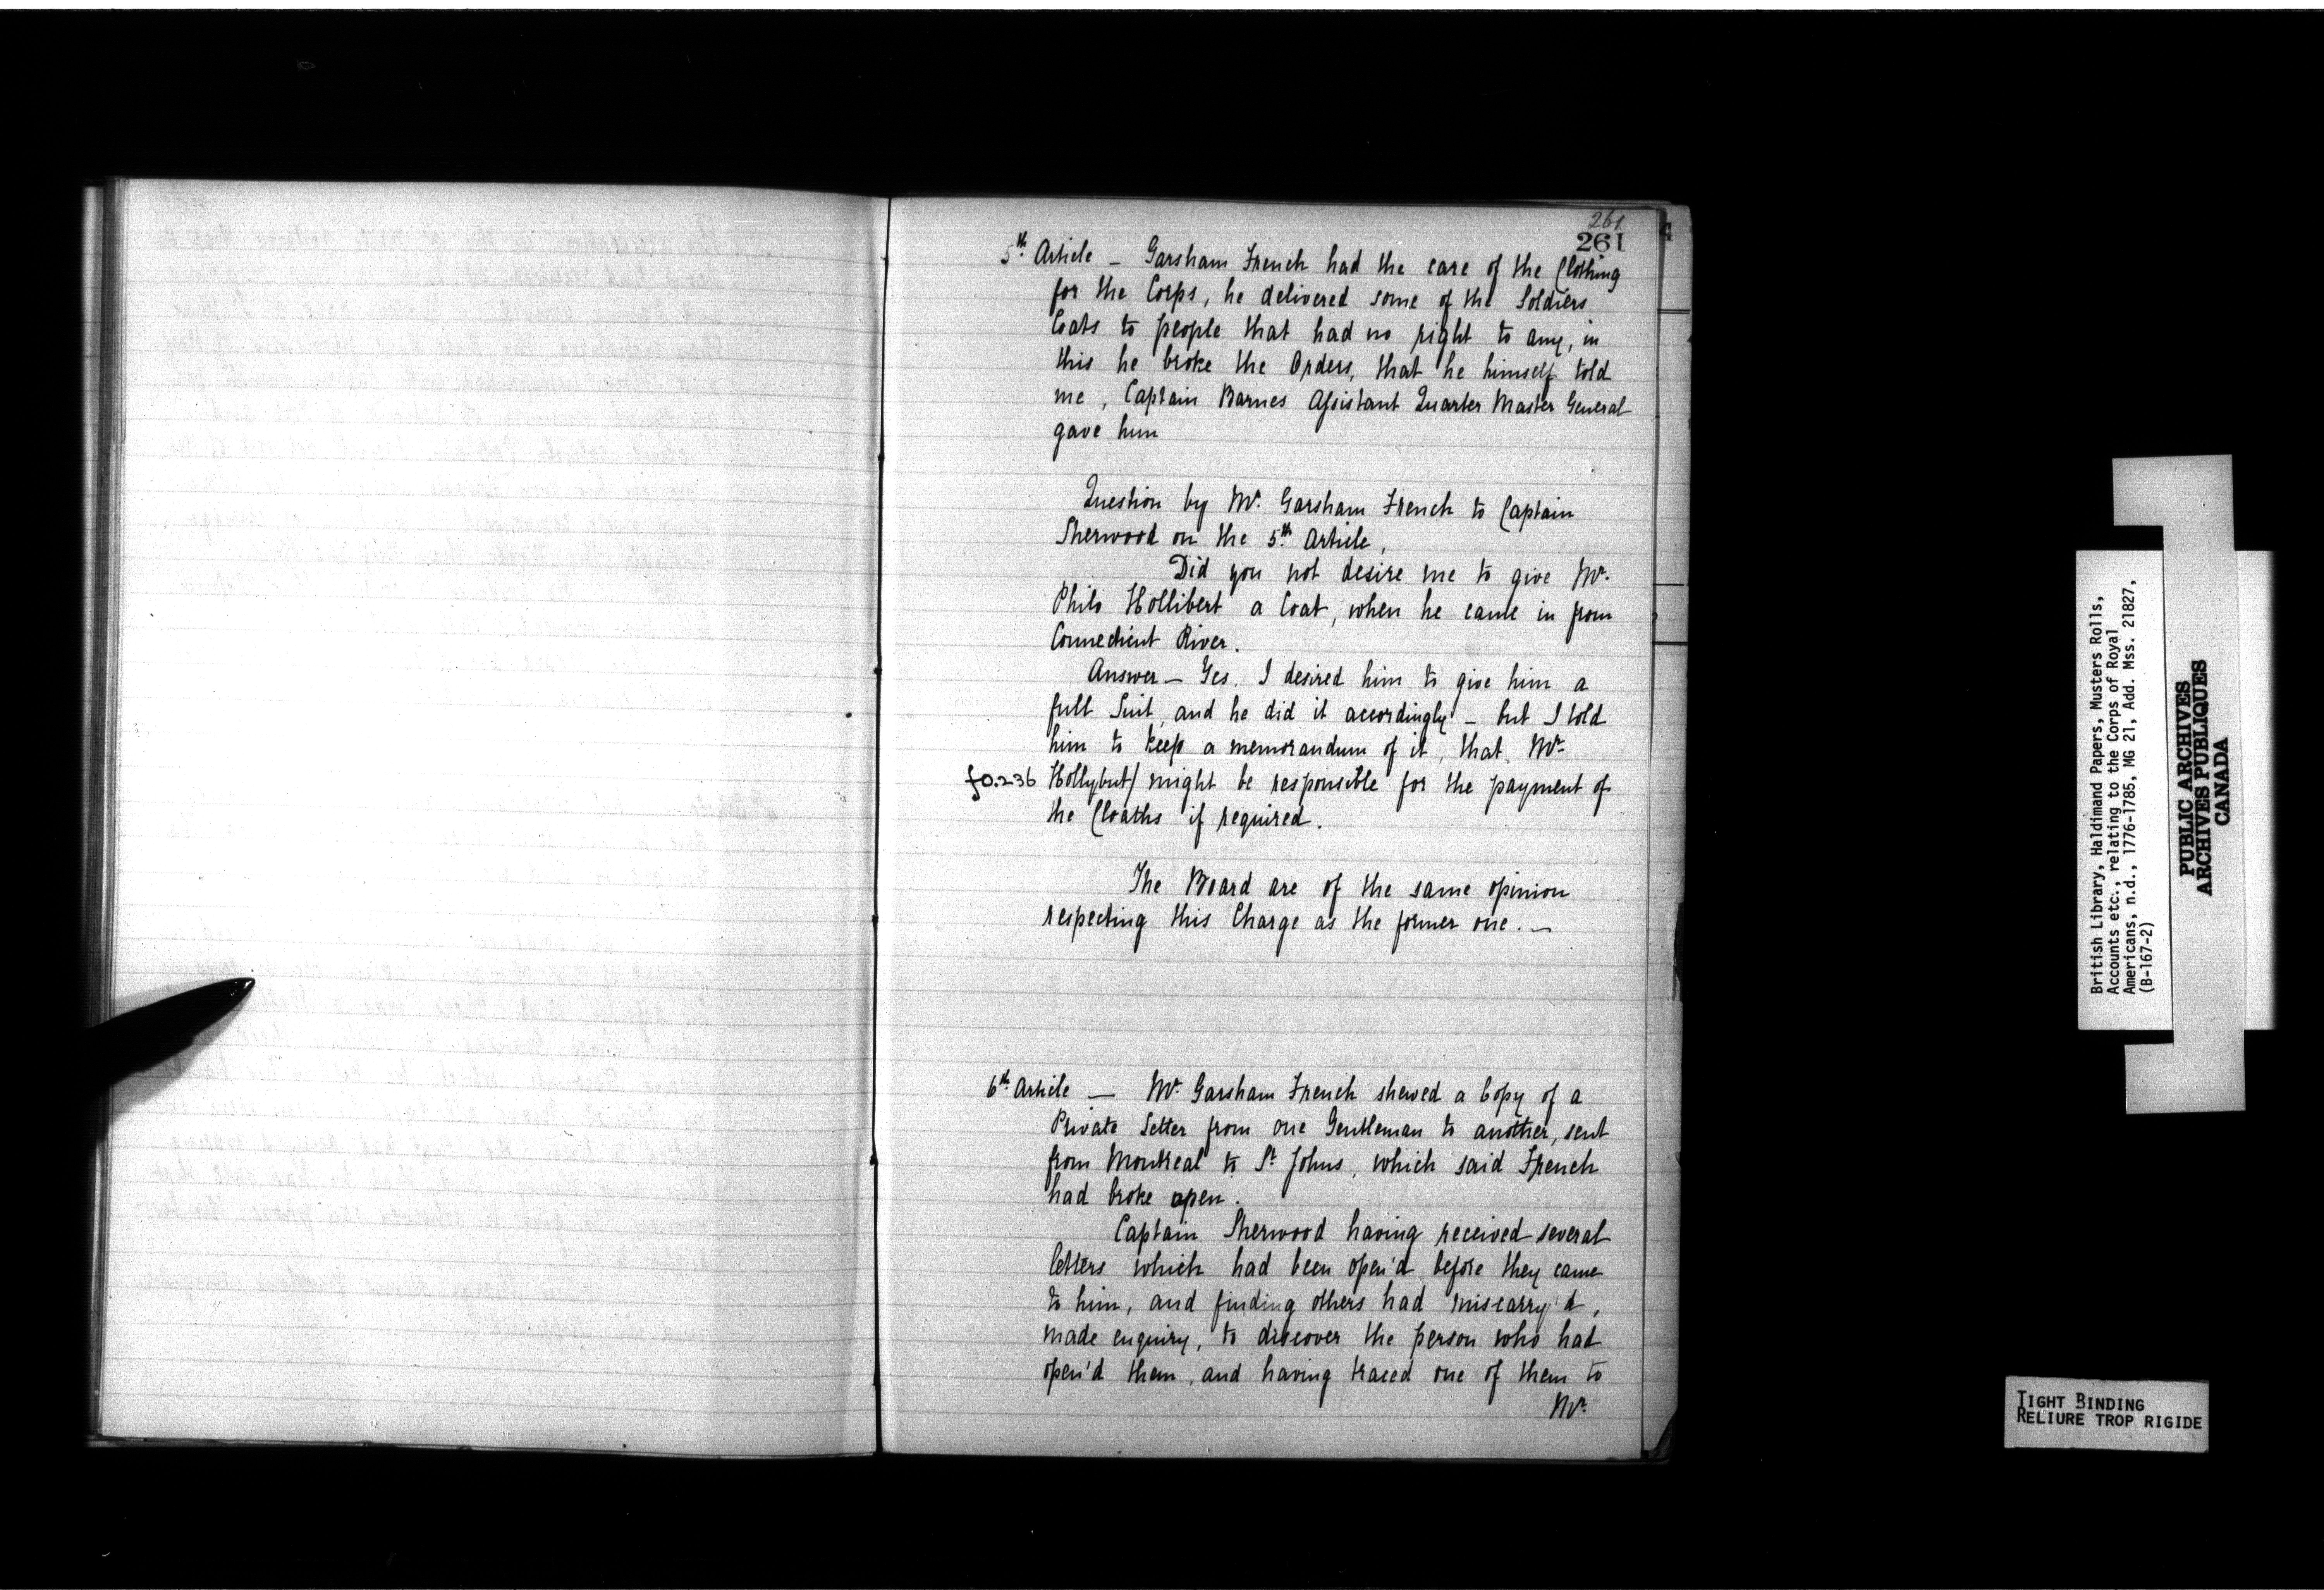 261
261
5th. Article – Garsham French had the care of the Clothing
for the Corps, he delivered some of the Soldiers
Coats to people that had no right to any, in
this he broke the Orders, that he himself told
me, Captain Barnes Assistant Quarter Master General
gave him
Question by Mr. Garsham French to Captain
Sherwood on the 5th. Article,
Did you not desire me to give Mr.
Philo Hollibert a Coat, when he came in from
Connecticut River.
Answer – Yes, I desired him to give him a
full Suit, and he did it accordingly – but I told
him to keep a memorandum of it, that Mr.
fo.236 Hollybut/ might be responsible for the payment of
the Cloaths if required.
The Board are of the same opinion
respecting this Charge as the former one. –
6th. Article — Mr. Garsham French shewed a Copy of a
Private Letter from one Gentleman to another, sent
from Montreal to St. Johns, which said French
had broke open.
Captain Sherwood having received several
letters which had been open'd before they came
to him, and finding others had miscarry'd,
made enquiry, to discover the person who had
open'd them, and having traced one of them to
Mr.
British Library, Haldimand Papers, Musters Rolls,
Accounts etc., relating to the Corps of Royal
Americans, n.d., 1776-1785, MG 21, Add. Mss. 21827,
(B-167-2)
PUBLIC ARCHIVES
ARCHIVES PUBLIQUES
CANADA
TIGHT BINDING
RELIURE TROP RIGIDE